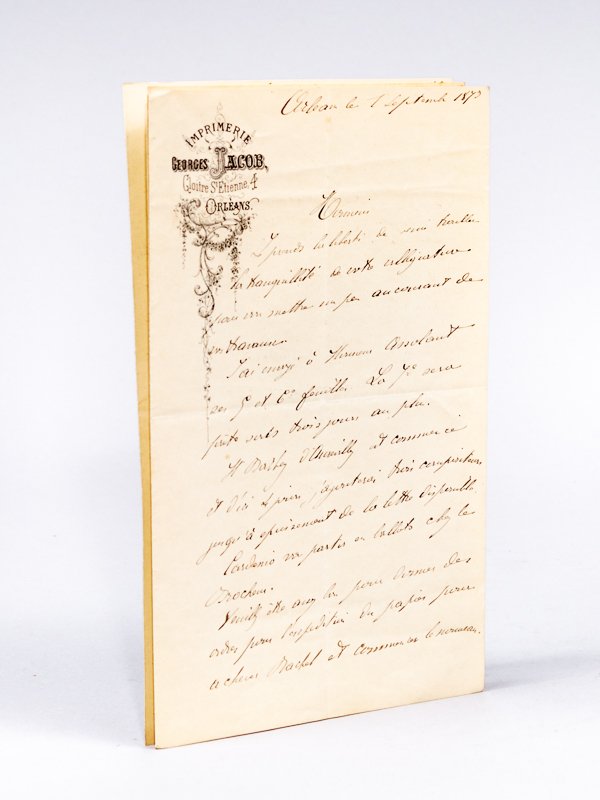 Orléans le 1 Septembre 1873
IMPRIMERIE
GEORGES JACOB,
Cloître St Etienne, 4
ORLÉANS.
Monsieur
Je prends la liberté de venir troubler
la tranquillité de votre villégiature
pour vous mettre un peu au courant de
vos travaux.
J'ai envoyé à Monsieur Assolant
ses 5e et 6e feuilles. La 7e sera
prête sous trois jours au plus.
Barbey d'Aurevilly est commencé
et d'ici jours j'ajouterai trois compositeurs
jusqu'à épuisement de la lettre disponible.
Cardenio va partir en ballots chez le
Brocheur.
Veuillez être assez bon pour donner des
ordres pour l'expédition du papier pour
achever Bachel et commencer le nouveau.